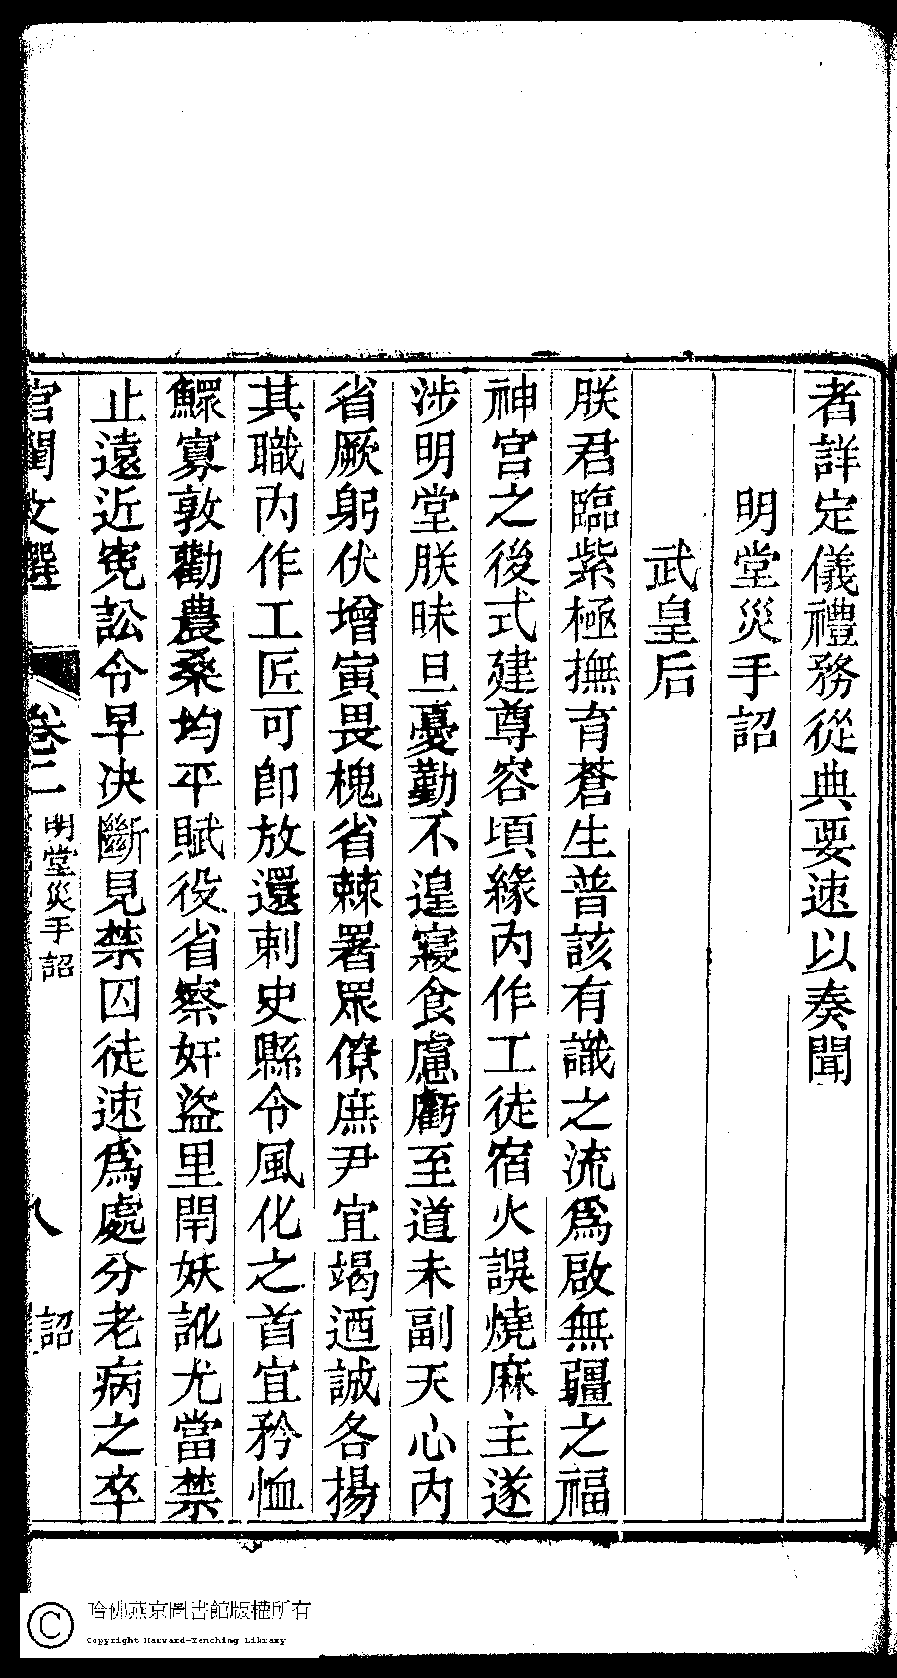 者詳定儀禮務從典要速以奏聞
明堂災手詔
武皇后
朕君臨紫極撫育蒼生普該有識之流爲啟無疆之福
神宮之後式建尊容頃緣內作工徒宿火誤燒麻主遂
涉明堂朕昧旦憂勤不遑寢食慮虧至道未副天心內
省厥躬伏增寅畏槐省棘署眾僚庶尹宜竭迺誠各揚
其職內作工匠可卽放還刺史縣令風化之首宜矜恤
鰥寡敦勸農桑均平賦役省察奸盜里閈妖訛尤當禁
止遠近寃訟令早决斷見禁囚徒速爲處分老病之卒
宮閨文選
卷二
明堂災手詔
八
詔
哈佛燕京圖書館版權所有
Copyright Harvard-Yenching Library